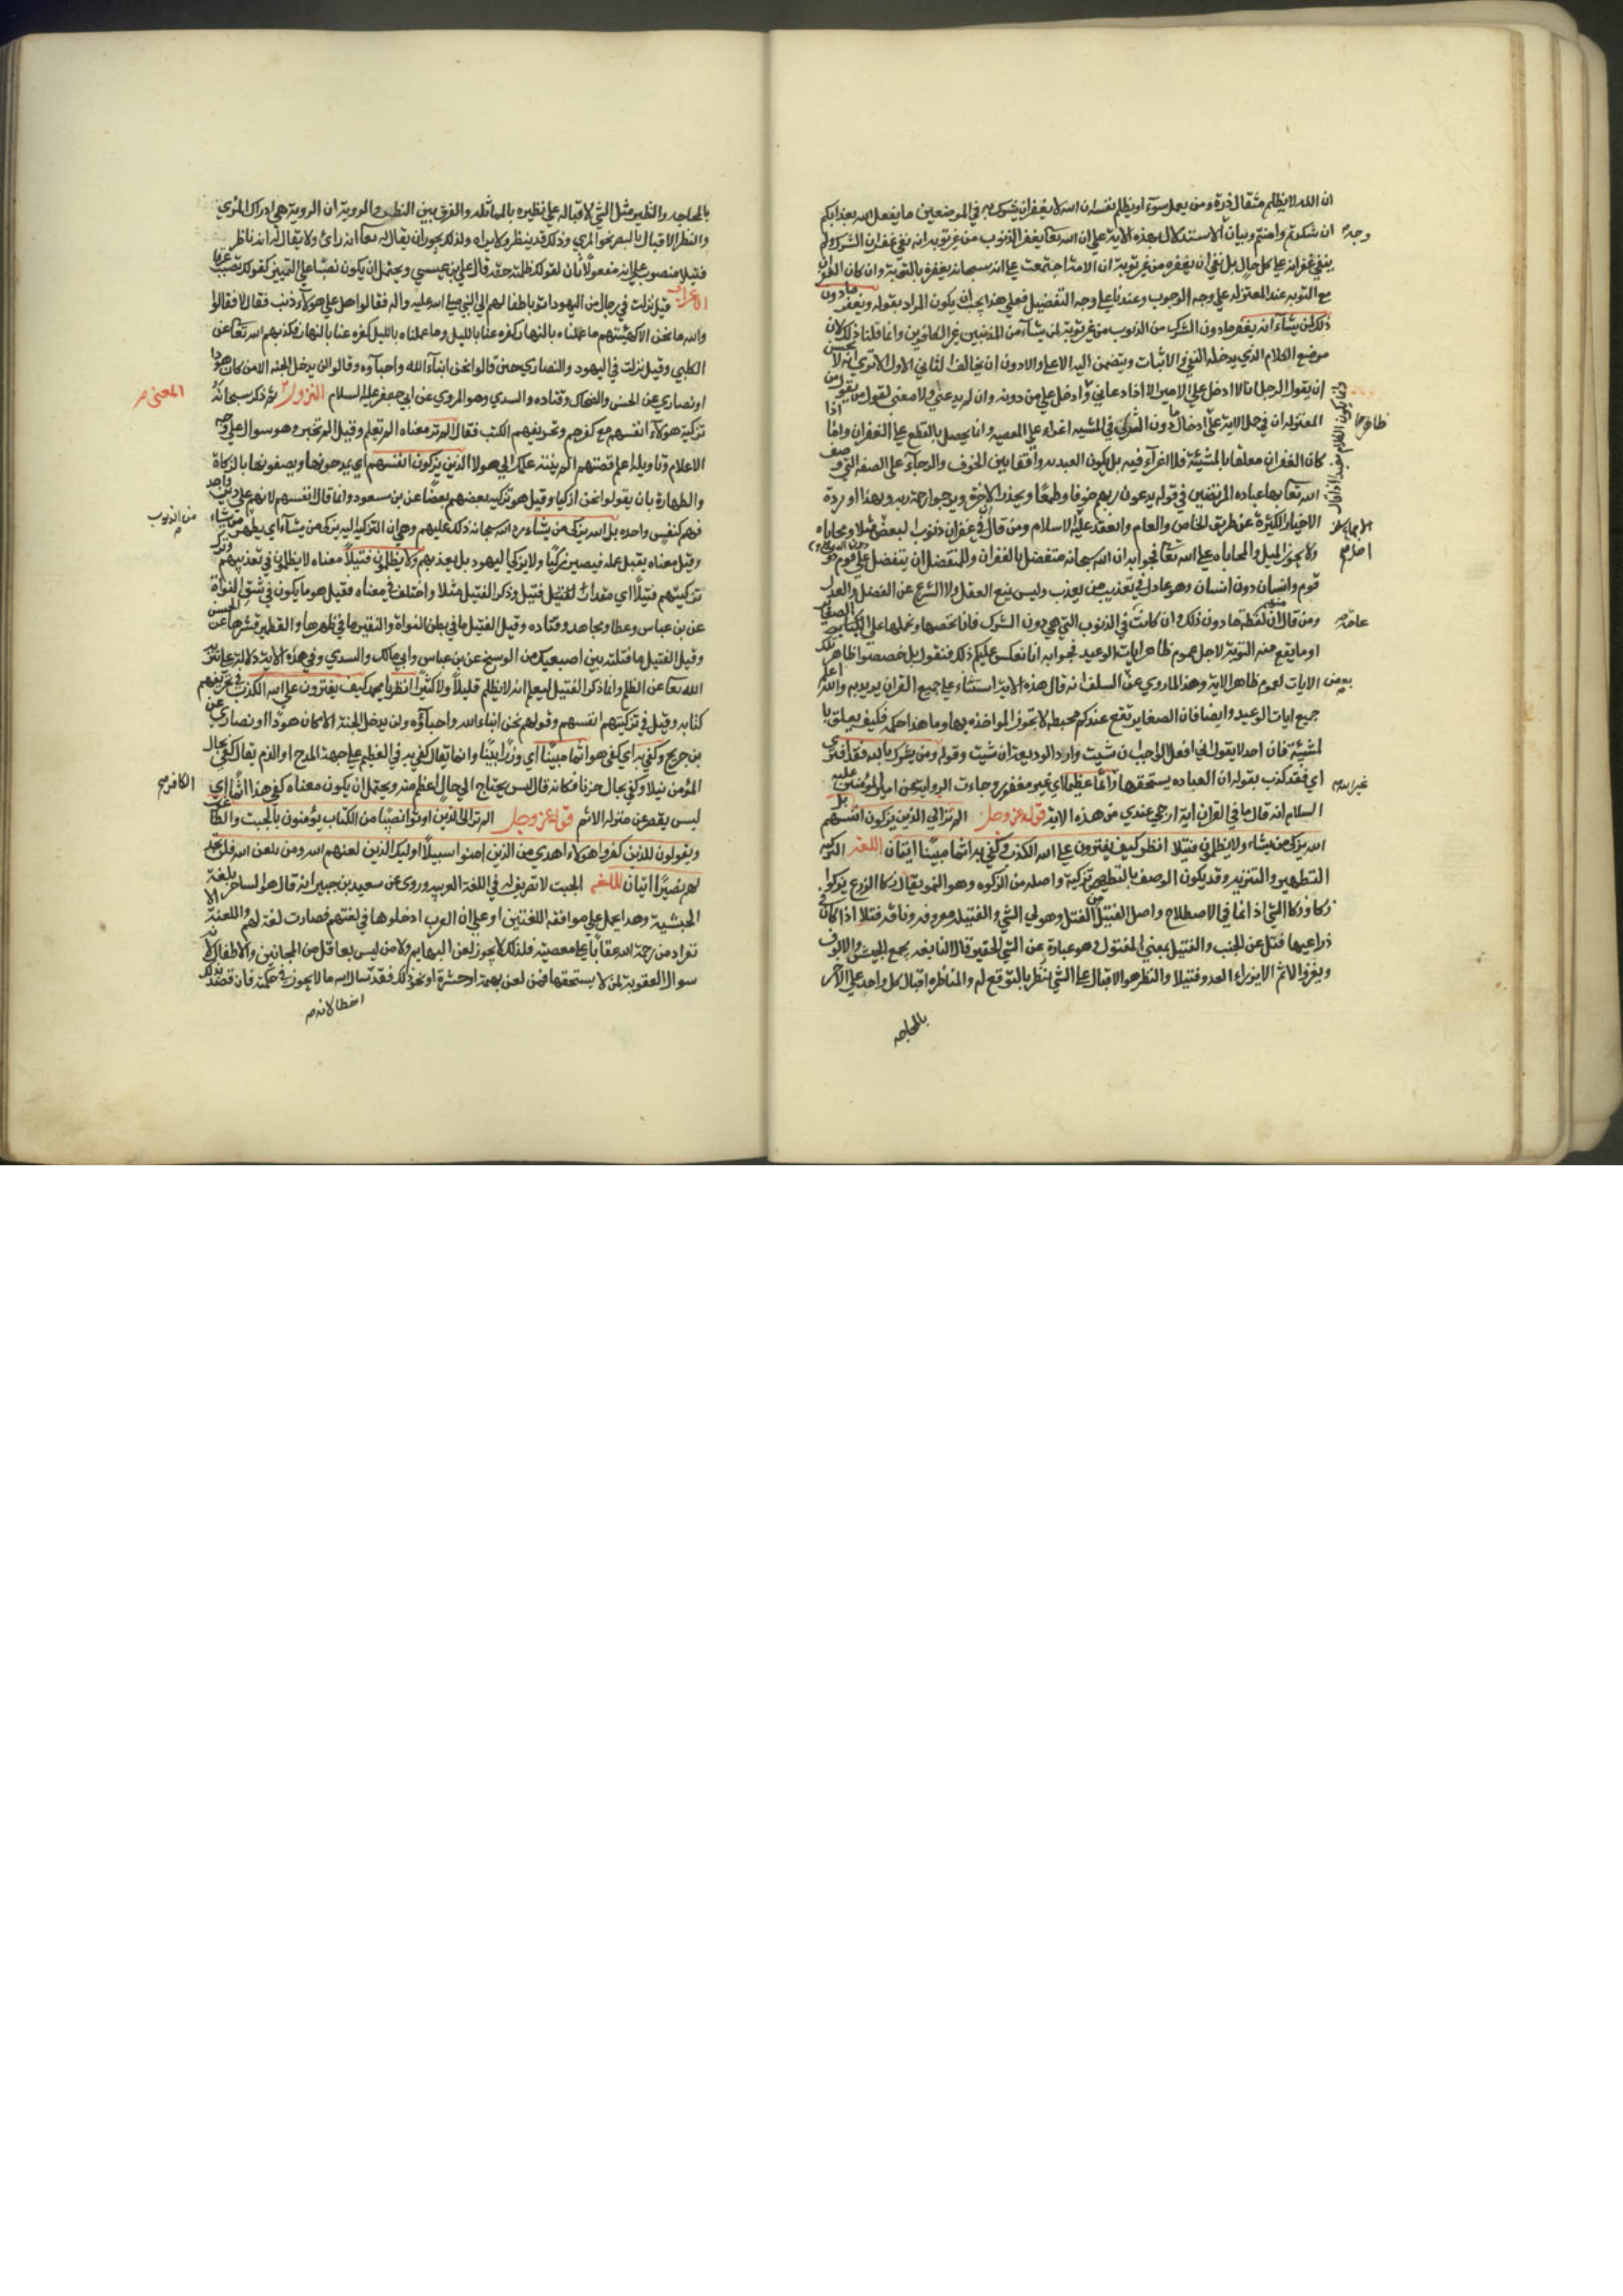 ان الله لا يظلم مثقال ذرة ومن يعمل سوءا او يظلم نفسه ان الله لا يغفر ان يشرك به في الموضعين ما يفعل الله بعذابكم
ان شكرتم وامنتم وبيان الاستدلال بهذه الاية على ان الله تعا يغفر الذنوب من غير توبة انه نفي غفران الشرك ولم
ينف غفرانه على كل حال بل نفي ان يغفره من غير توبة ان الامة اجتمعت على ان الله سبحانه يغفره بالتوبة وان كان الغفران
مع التوبة عند المعتزله على وجه الوجوب وعندنا على وجه التفضيل فعلى هذا يجب ان يكون المراد بقوله ويغفر ما دون
ذلك لمن يشاء انه يغفر ما دون الشرك من الذنوب من غير توبة لمن يشاء من المذنبين غير الكافرين وانما قلنا ذلك لان
موضع الكلام الذي يدخله النفي والاثبات وينضمن اليه الاعلا والادون ان يخالف الثاني الاول الا ترى انه لا يحسن
ان يقول الرجل انا لا ادخل على الامير الا اذا دعاني وادخل على من دونه وان لم يدعني ولا معنى لقول من يقول من
المعتزله ان في حمل الاية على ادخال ما دون الشرك في المشيه اغراء على المعصيه وانما يحصل بالقطع على الغفران واما اذا
كان الغفران معلقا بالمشيئة فلا اغراء فيه بل يكون العبد به واقفا بين الخوف والرجاء على الصفه التي وصف
الله تعا بها عباده المرتضين في قوله يدعون ربهم خوفا وطمعا ويحذر الاخرة ويرجوا رحمة ربه وبهذا وردة
الاخبار الكثيرة عن طريق الخاص والعام وانعقد عليه الاسلام ومن قال ان في غفران ذنوب البعض ميلا ومحاباه
ولا يجوز الميل والمحاباه على الله تعا فجوابه ان الله سبحانه متفضل بالغفران وللمتفضل ان يتفضل على قوم دون
قوم وانسان دون انسان وهو عادل في تعذيب من يعذب وليس يمنع العقل ولا الشرع عن الفضل والعدل
ومن قال ان لفظة ما دون ذلك وان كانت في الذنوب التي هي دون الشرك فانا نخصها ونحملها على الصغاير
او ما يقع منه التوبة لاجل عموم ظاهر ايات الوعيد فجوابه انا نعكس عليكم ذلك فنقول بل خصصتوا ظاهر تلك
الايات لعموم ظاهر الاية وهذا لما روي عن السلف انه قال هذه الاية استثناء على جميع القران يريد به والله اعلم
جميع ايات الوعيد وايضا فان الصغاير تقع عندكم محبطه لا تجوز المواخذه بها وما هذا حكمه فكيف يعلق با
لمشيئة فان احد لا يقول اني افعل الواجب ان شيت وارد الوديعة ان شيت وقوله ومن يشرك بالله فقد افترى
اي فقد كذب بقوله ان العباده يستحقها واثما عظيما اي غير مغفور وجاءت الروايه عن امير المؤمنين عليه
السلام انه قال ما في القران اية ارجي عندي من هذه الاية قوله عز وجل الم تر الى الذين يزكون انفسهم بل
الله يزكي من يشاء ولا يظلمون فتيلا انظر كيف يفترون على الله الكذب وكفي به اثما مبينا ايتان اللغه التزكيه
التطهير والتنزيه وقد يكون الوصف بالتطهير تزكية واصله من الزكوه وهو النمو يقال زكا الزرع يزكوا
زكا وزكا الشي اذ انما في الاصطلاح واصل الفتيل من الفتل وهو لي الشي والفتيله معروفه وناقه فتلا اذا كان في
ذراعيها فتل عن الجنب والفتيل بمعنى المفتول وهو عبارة عن الشي الحقير قال النابغه يجمع الجيش ذا الالوف
ويغزوا ثم لا يرزا العدو فتيلا والنظر هو الاقبال على الشي ينظر بالتوقع له والمناظره اقبال كل واحد على الاخر
بالمحاجه
وجه
ظاهر
وانما يكون الكلام مفيدا اذا قال
اصل
عامه
غير الله
بالمحاجه والنظير مثل الشي لاقباله على نظيره بالمماثله والفرق بين النظر والروية ان الروية هي ادراك المرئي
والنظر الاقبال بالبصر نحو المرئ وذلك قد ينظر ولا يراه ولذلك يجوز ان يقال له تعا انه رائ ولا يقال له انه ناظر
فتيلا منصوب على انه مفعولا ثان لقولك ظلمته حقه قال علي بن عيسى ويحتمل ان يكون نصبا على التمييز كقولك تصبب عرقا
الاعراب قيل نزلت في رجال من اليهود اتوا باطفالهم الى النبي صلى الله عليه واله فقالوا هل على هولاء ذنب فقال لا فقالوا
والله ما نحن الا كهيئتهم ما عملناه بالنهار كفره عنا بالليل وما عملناه بالليل كفره عنا بالنهار فكذبهم الله تعا عن
الكلبي وقيل نزلت في اليهود والنصارى حين قالوا نحن ابناء الله واحباؤه وقالوا لن يدخل الجنه الا من كان هودا
او نصارى عن الحسن والضحاك وقتاده والسدي وهو المروي عن ابي جعفر عليه السلام النزول ثم ذكر سبحانه
تزكية هولاء انفسهم مع كفرهم وتحريفهم الكتب فقال الم تر معناه الم تعلم وقيل الم تخبر وهو سوال على وجه
الاعلام وتاويله اعلم قصتهم الم ينته علمك الى هولا الذين يزكون انفسهم اي يمدحونها ويصفونها بالزكاة
والطهارة بان يقولوا نحن ازكيا وقيل هو تزكيه بعضهم بعضا عن بن مسعود وانما قال انفسهم لانهم على دين واحد
فهم كنفس واحده بل الله يزكي من يشاء رد الله سبحانه ذلك عليهم وهي ان التزكيه اليه يزكي من يشاء اي يطهر من يشاء
وقيل معناه يقبل عمله فيصير زكيا ولا يزكي اليهود بل يعذبهم ولا يظلمون فتيلا معناه لا يظلمون في تعذيبهم وترك
تزكيتهم فتيلا اي مقدار الفتيل فتيل وذكر الفتيل مثلا واختلف في معناه فقيل هو ما يكون في شق النواة
عن بن عباس وعطا ومجاهد وقتاده وقيل الفتيل ما في بطن النواة والنقير ما في ظهرها والقطمير قشرها عن الحسن
وقيل الفتيل ما فتلته بين اصبعيك من الوسخ عن بن عباس وابي مالك والسدي وفي هذه الاية دلالة على تنزيه
الله تعا عن الظلم وانما ذكر الفتيل ليعلم انه لا يظلم قليلا ولا كثيرا انظر يا محمد كيف يفترون على الله الكذب في تحريفهم
كتابه وقيل في تزكيتهم انفسهم وقولهم نحن ابناء الله واحباؤه ولن يدخل الجنة الا من كان هودا او نصارى عن
بن جريج وكفي به اي كفى هو اثما مبينا اي وزرا بينا وانما يقال كفي به في العظيم على جهة المدح او الذم يقال كفي بحال
المؤمن نيلا وكفي بحال حزنا فكانه قال ليس يحتاج الى حال اعظم منه ويحتمل ان يكون معناه كفي هذا اثما اي
ليس يقصر عن منزله الاثم قوله عز وجل الم تر الى الذين اوتوا نصيبا من الكتاب يؤمنون بالجبت والطاغوت
ويقولون للذين كفروا هولاء اهدى من الذين امنوا سبيلا اوليك الذين لعنهم الله ومن يلعن الله فلن تجد
له نصيرا ايتان اللغه الجبت لا تصريف له في اللغة العربيه وروي عن سعيد بن جبير انه قال هو الساحر بلغة
الحبشية وهذا يحمل على موافقه اللغتين او على ان العرب ادخلوها في لغتهم فصارت لغة لهم واللعنة الا
بعاد من رحمة الله عقابا على معصيته فلذلك لا يجوز لعن البهايم ولا من ليس بعاقل من المجانين والاطفال لانه
سوال العقوبة لمن لا يستحقها فمن لعن بهيمة او حشرة او نحو ذلك فقد سال الله ما لا يجوز في حكمته فان قصد بذلك
المعنى
من الذنوب
الكافر
اخطا لانه